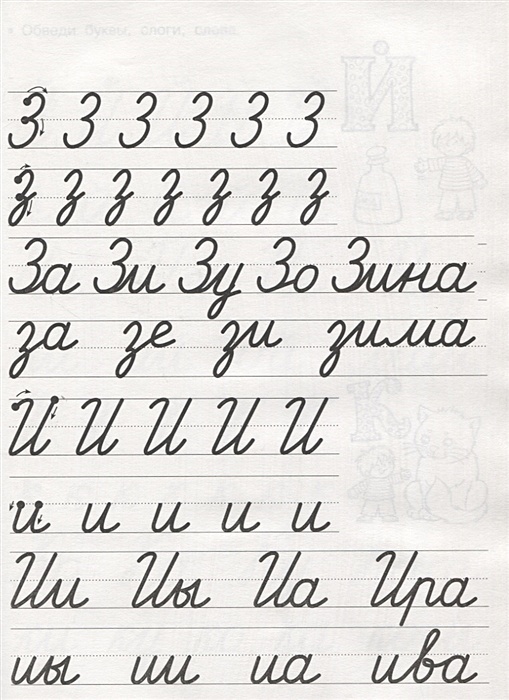 Обведи буквы, слоги, слова.
З З З З З З
з з з з з з з
За Зи Зу Зо Зина
за зе зи зима
И И И И И
и и и и и
Ии Иы Иа Ира
иы ии иа ива